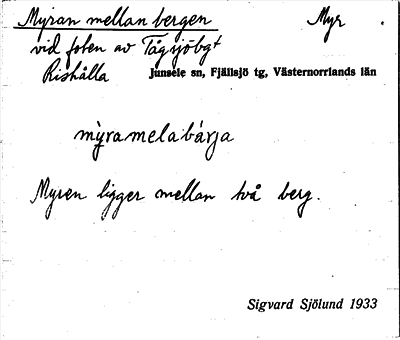 Myran mellan bergen Myr
vid foten av Tågsjöbgt
Rishålla Junsele sn, Fjällsjö tg, Västernorrlands län
mỳramelabárja
Myren ligger mellan två berg.
Sigvard Sjölund 1933